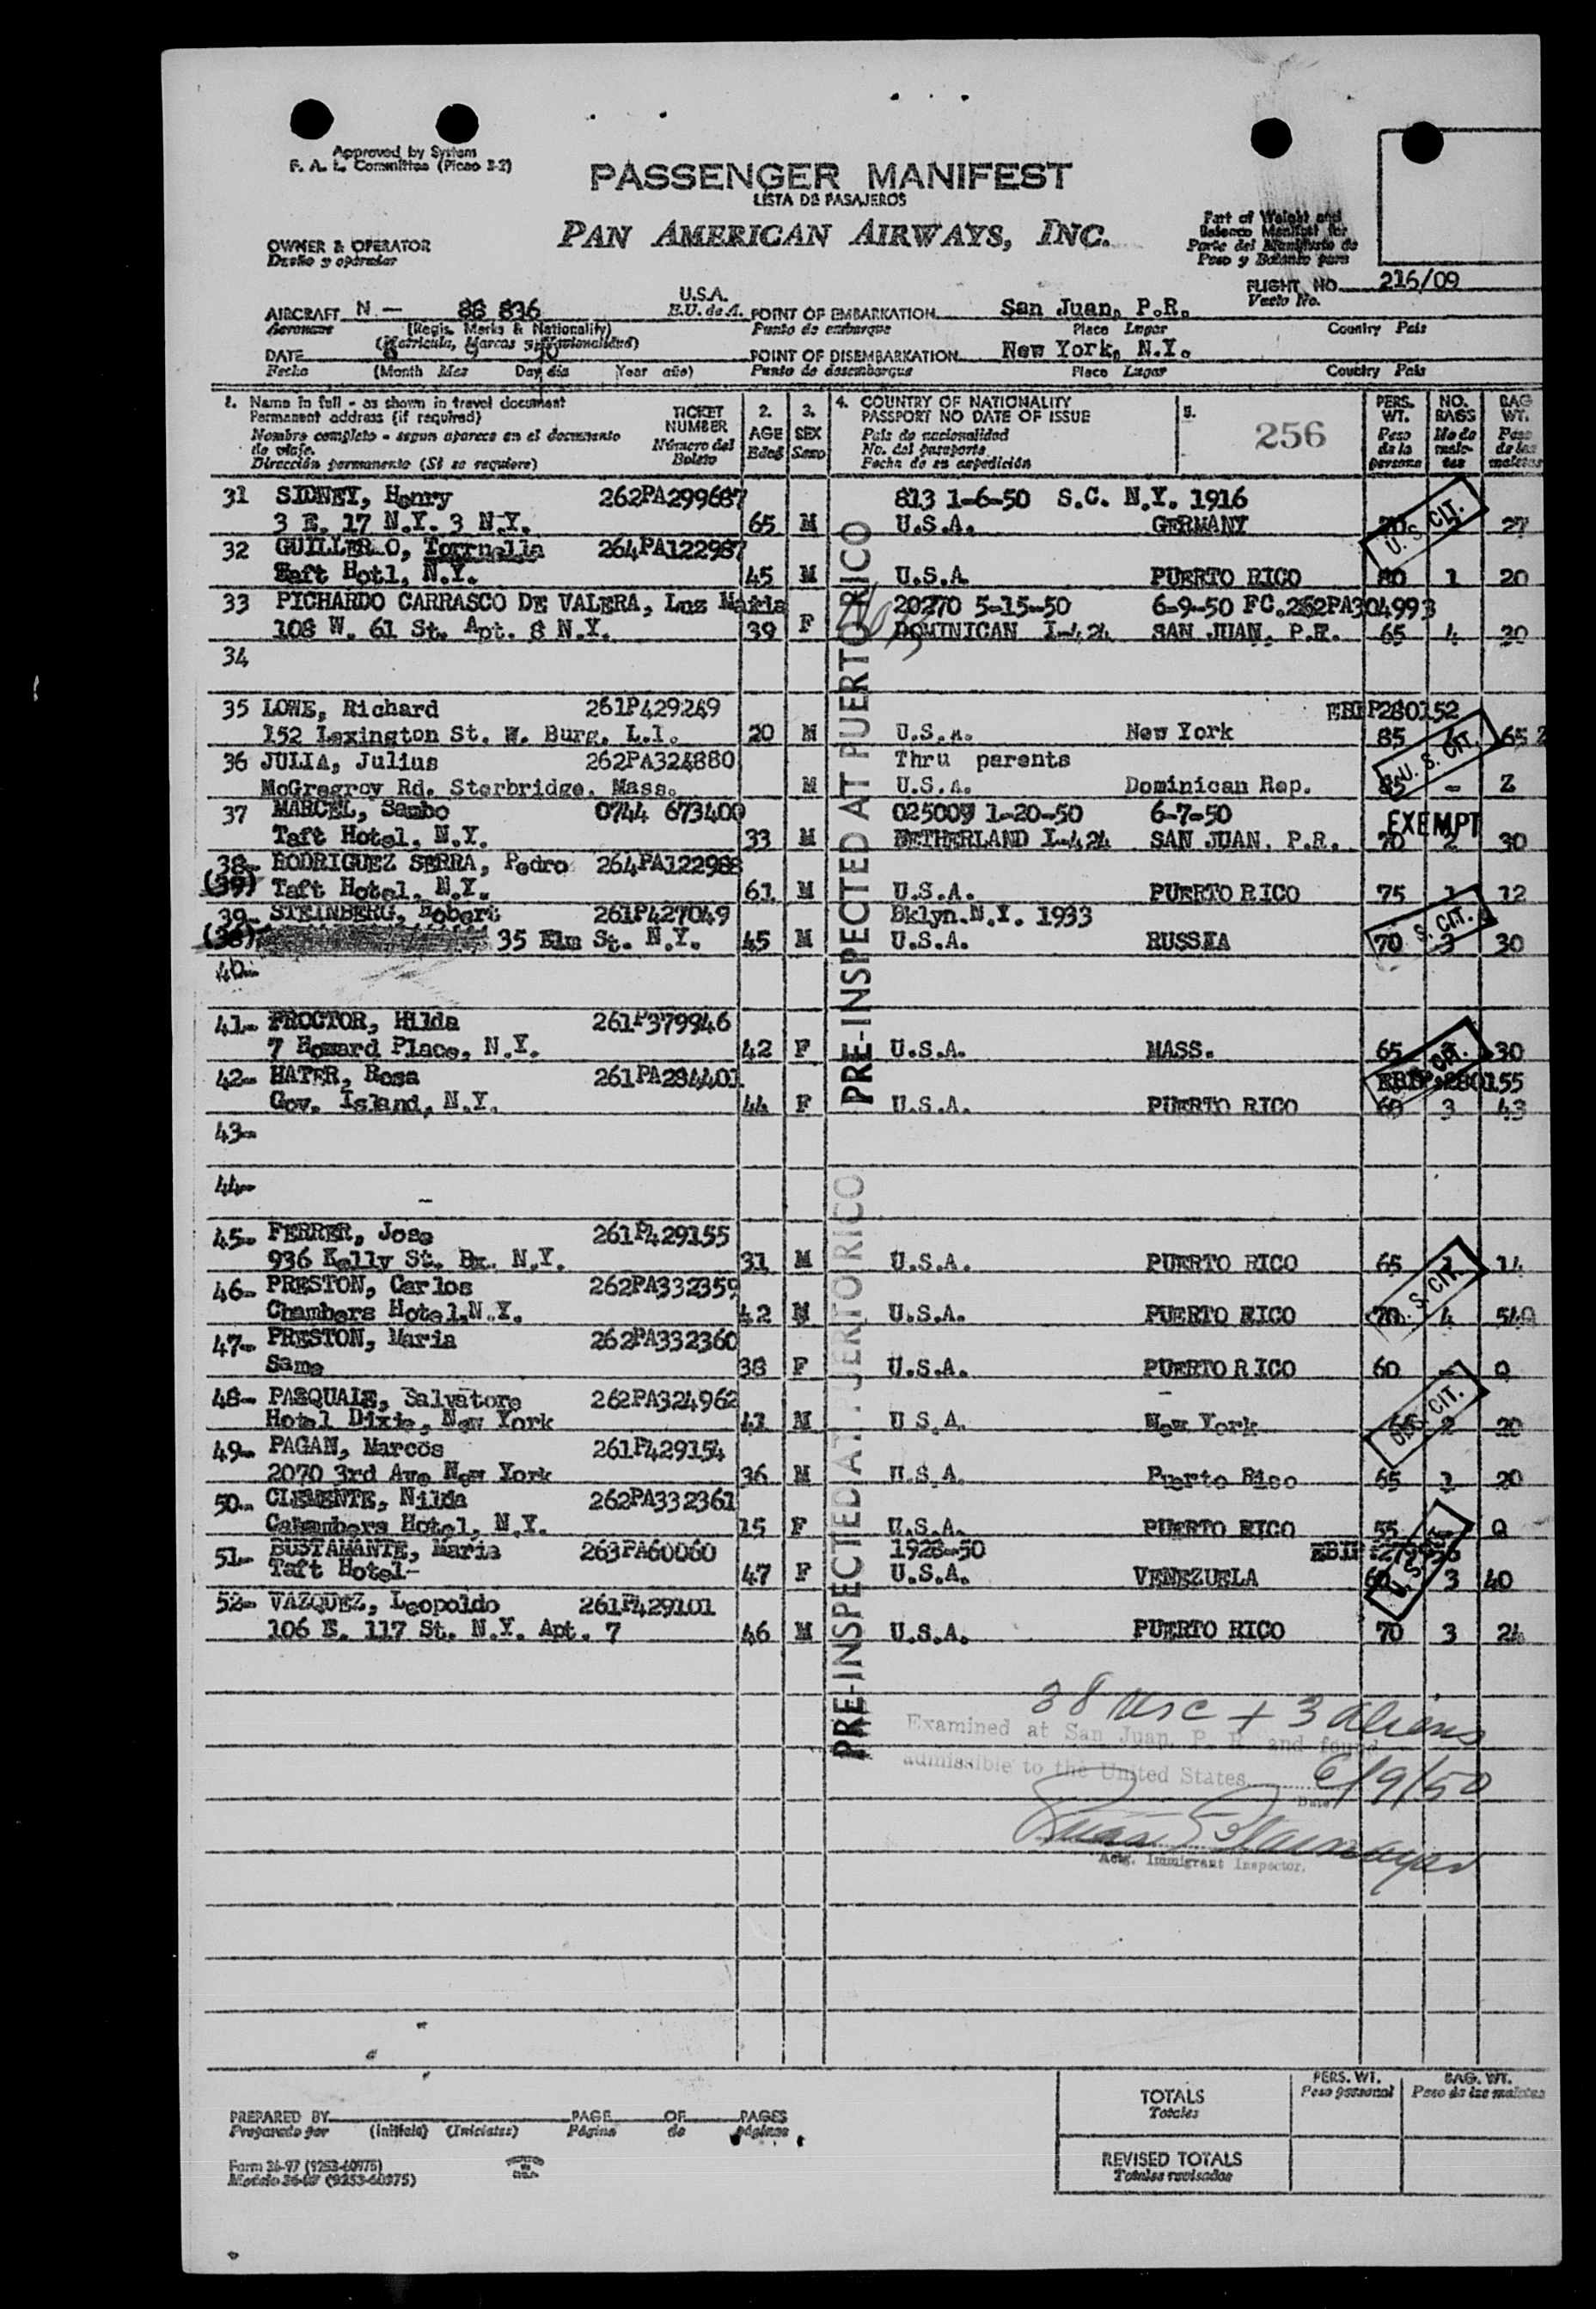 Approved by System
F. A. L. Committee (Picao 2-2)
PASSENGER MANIFEST
LISTA DE PASAJEROS
PAN AMERICAN AIRWAYS, INC.
Part of Weight and
Balance Manifest for
Parte del Manifiesto de
Peso y Balance para
OWNER & OPERATOR
Dueño y operador
FLIGHT NO. 216/09
Vuelo No.
AIRCRAFT N - 88 836 U.S.A. POINT OF EMBARKATION San Juan, P.R.
Aeronave (Regis. Marks & Nationality) E.U. de A. Punto de embarque Place Lugar Country Pais
(Matricula, Marcas y Nacionalidad)
DATE POINT OF DISEMBARKATION New York, N.Y.
Fecha (Month Mes Day dia Year año) Punto de desembarque Place Lugar Country Pais
1. Name in full - as shown in travel document
Permanent address (if required)
Nombre completo - segun aparece en el documento
de viaje.
Dirección permanente (Si se requiere)
TICKET
NUMBER
Número del
Boleto
2.
AGE
Edad
3.
SEX
Sexo
4. COUNTRY OF NATIONALITY
PASSPORT NO DATE OF ISSUE
Pais de nacionalidad
No. del pasaporte
Fecha de su expedición
5.
256
PERS.
WT.
Peso
de la
persona
NO.
BAGS
No de
male-
tas
BAG
WT.
Peso
de las
maletas
31 SIDNEY, Henry 262PA299687 813 1-6-50 S.C. N.Y. 1916
3 E. 17 N.Y. 3 N.Y. 65 M U.S.A. GERMANY 27
U. S. CIT.
32 GUILLERMO, Torruella 264PA122987
Taft Hotl, N.Y. 45 M U.S.A. PUERTO RICO 80 1 20
33 PICHARDO CARRASCO DE VALERA, Luz Maria 20270 5-15-50 6-9-50 FC.262PA304993
108 W. 61 St. Apt. 8 N.Y. 39 F DOMINICAN I-424 SAN JUAN, P.R. 65 4 30
34
35 LOWE, Richard 261P429249 EBIP280152
152 Lexington St. W. Burg, L.I. 20 M U.S.A. New York 85 65 Z
36 JULIA, Julius 262PA324880 Thru parents
U. S. CIT.
McGregroy Rd. Sterbridge, Mass. M U.S.A. Dominican Rep. 85 - Z
37 MARCEL, Sambo 0744 673400 025009 1-20-50 6-7-50 EXEMPT
Taft Hotel, N.Y. 33 M NETHERLAND I-424 SAN JUAN, P.R. 70 2 30
38- RODRIGUEZ SERRA, Pedro 264PA122988
(39) Taft Hotel, N.Y. 61 M U.S.A. PUERTO RICO 75 1 12
39- STEINBERG, Robert 261P427049 Bklyn.N.Y. 1933
(38) 35 Elm St. N.Y. 45 M U.S.A. RUSSIA 70 3 30
U. S. CIT.
40-
41- PROCTOR, Hilda 261P379946
7 Howard Place, N.Y. 42 F U.S.A. MASS. 65 30
42- HATER, Rosa 261PA284401 EBIP.280155
Gov. Island, N.Y. 44 F U.S.A. PUERTO RICO 60 3 43
43-
44-
PRE-INSPECTED AT PUERTO RICO
45- FERRER, Jose 261P429155
936 Kelly St. Bx. N.Y. 31 M U.S.A. PUERTO RICO 65 1 14
U. S. CIT.
46- PRESTON, Carlos 262PA332359
Chambers Hotel,N.Y. 42 M U.S.A. PUERTO RICO 70 4 54Q
47- PRESTON, Maria 262PA332360
Same 38 F U.S.A. PUERTO RICO 60 - Q
48- PASQUALE, Salvatore 262PA324962
Hotel Dixie, New York 41 M U.S.A. New York 65 2 20
U.S. CIT.
49- PAGAN, Marcos 261P429154
2070 3rd Ave New York 36 M U.S.A. Puerto Rico 65 1 20
50- CLEMENTE, Nilda 262PA332361
Cahambers Hotel, N.Y. 15 F U.S.A. PUERTO RICO 55 Q
51- BUSTAMANTE, Maria 263PA60060 1928-50
Taft Hotel- 47 F U.S.A. VENEZUELA 3 40
52- VAZQUEZ, Leopoldo 261P429101
106 E. 117 St. N.Y. Apt. 7 46 M U.S.A. PUERTO RICO 70 3 24
PRE-INSPECTED AT PUERTO RICO
38 USC + 3 aliens
Examined at San Juan, P. R. and found
admissible to the United States 6/9/50
Date
Actg. Immigrant Inspector.
TOTALS
Totales
PERS. WT.
Peso personal
BAG. WT.
Peso de las maletas
REVISED TOTALS
Totales revisados
PREPARED BY PAGE OF PAGES
Preparado por (Initials) (Iniciales) Página de páginas
Form 26-97 (9253-60975)
Modelo 26-97 (9253-60975)